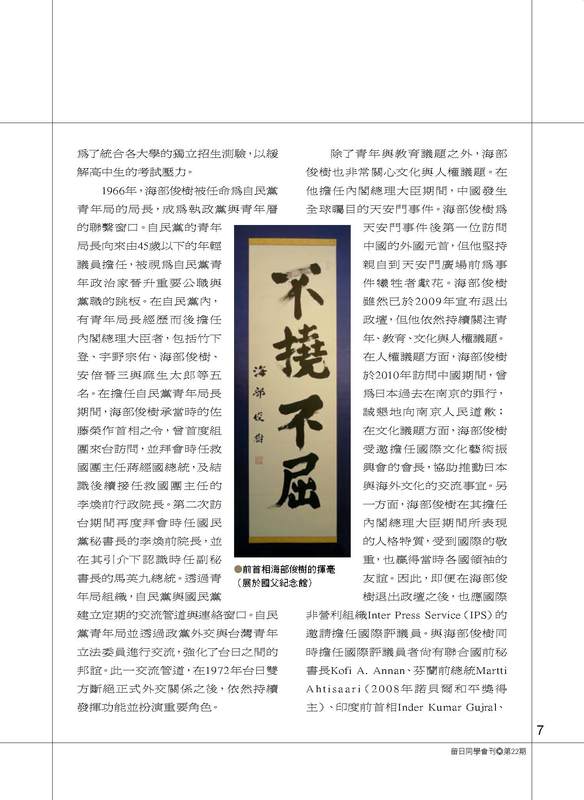 為了統合各大學的獨立招生測驗，以緩
解高中生的考試壓力。
1966年，海部俊樹被任命為自民黨
青年局的局長，成為執政黨與青年層
的聯繫窗口。自民黨的青年
局長向來由45歲以下的年輕
議員擔任，被視為自民黨青
年政治家晉升重要公職與
黨職的跳板。在自民黨內，
有青年局長經歷而後擔任
內閣總理大臣者，包括竹下
登、宇野宗佑、海部俊樹、
安倍晉三與麻生太郎等五
名。在擔任自民黨青年局長
期間，海部俊樹承當時的佐
藤榮作首相之令，曾首度組
團來台訪問，並拜會時任救
國團主任蔣經國總統，及結
識後續接任救國團主任的
李煥前行政院長。第二次訪
台期間再度拜會時任國民
黨秘書長的李煥前院長，並
在其引介下認識時任副秘
書長的馬英九總統。透過青
年局組織，自民黨與國民黨
建立定期的交流管道與連絡窗口。自民
黨青年局並透過政黨外交與台灣青年
立法委員進行交流，強化了台日之間的
邦誼。此一交流管道，在1972年台日雙
方斷絕正式外交關係之後，依然持續
發揮功能並扮演重要角色。
不撓不屈
海部俊樹
●前首相海部俊樹的揮毫
（展於國父紀念館）
除了青年與教育議題之外，海部
俊樹也非常關心文化與人權議題。在
他擔任內閣總理大臣期間，中國發生
全球矚目的天安門事件。海部俊樹為
天安門事件後第一位訪問
中國的外國元首，但他堅持
親自到天安門廣場前為事
件犧牲者獻花。海部俊樹
雖然已於2009年宣布退出
政壇，但他依然持續關注青
年、教育、文化與人權議題。
在人權議題方面，海部俊樹
於2010年訪問中國期間，曾
為日本過去在南京的罪行，
誠懇地向南京人民道歉；
在文化議題方面，海部俊樹
受邀擔任國際文化藝術振
興會的會長，協助推動日本
與海外文化的交流事宜。另
一方面，海部俊樹在其擔任
內閣總理大臣期間所表現
的人格特質，受到國際的敬
重，也贏得當時各國領袖的
友誼。因此，即便在海部俊
樹退出政壇之後，也應國際
非營利組織Inter Press Service（IPS）的
邀請擔任國際評議員。與海部俊樹同
時擔任國際評議員者尚有聯合國前秘
書長Kofi A. Annan、芬蘭前總統Martti
Ahtisaari（2008年諾貝爾和平獎得
主）、印度前首相Inder Kumar Gujral、
7
留日同學會刊◎第22期